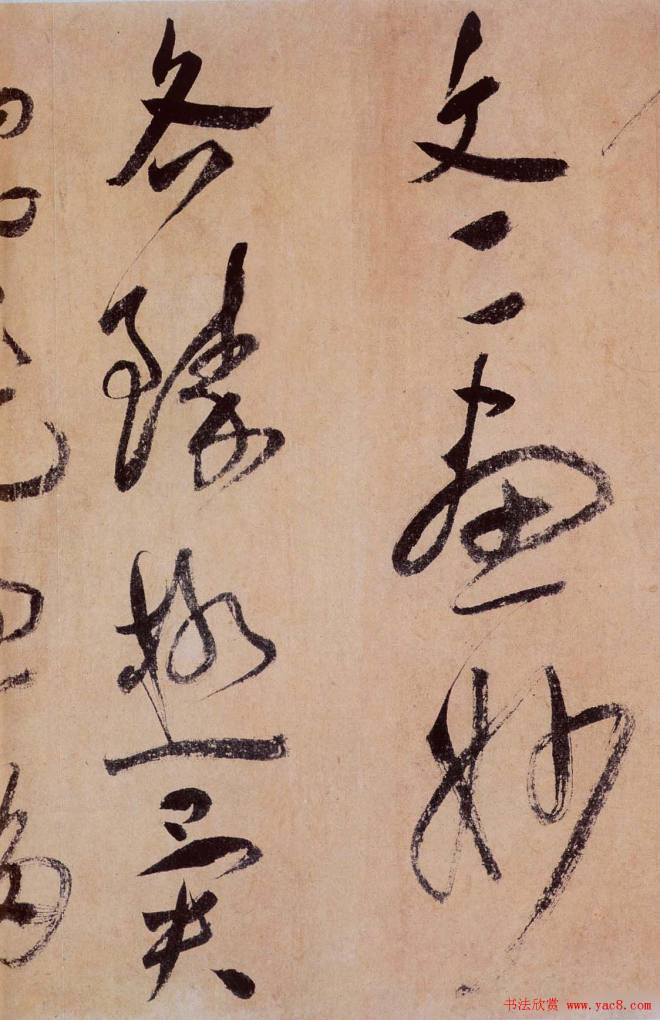 文工畫妙
各臻極異
书法欣赏 www.yac8.com